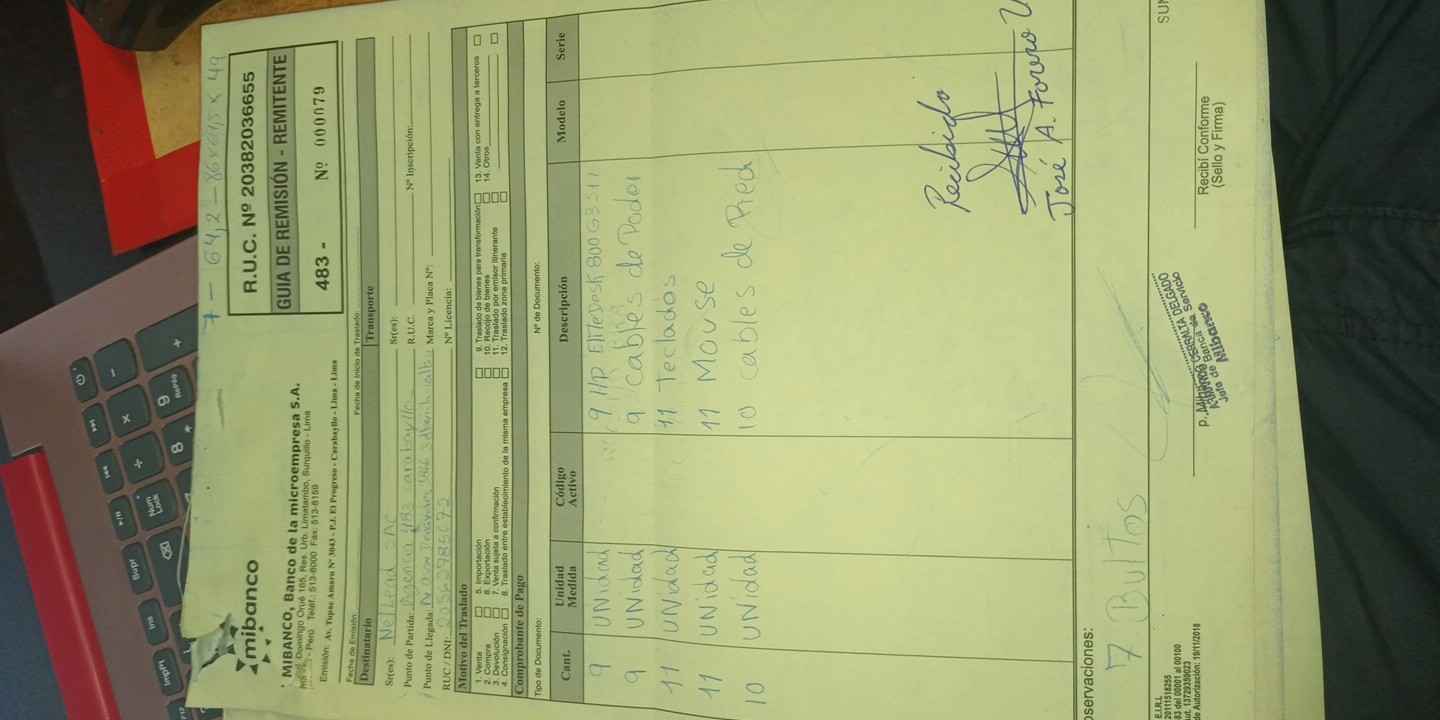 7 - 64,2 - 86x61,5 x 49
mibanco
MIBANCO, Banco de la microempresa S.A.
Domingo Orué 165, Res. Urb. Limatambo, Surquillo - Lima
- Perú Teléf.: 513-8000 Fax: 513-8169
Emisión: Av. Tupac Amaru N° 3043 - P.J. El Progreso - Carabayllo - Lima - Lima
R.U.C. Nº 20382036655
GUIA DE REMISIÓN - REMITENTE
483 - Nº 000079
Fecha de Emisión: Fecha de Inicio de Traslado:
Destinatario
Sr(es): Netlead SAC
Punto de Partida: Agencia 483 carabayllo
Punto de Llegada: Av Oscar Benavides 3866
RUC / DNI: 20562785672
Transporte
Sr(es):
R.U.C. Nº Inscripción:
Marca y Placa Nº:
Nº Licencia:
Motivo del Traslado
1. Venta
2. Compra
3. Devolución
4. Consignación
5. Importación
6. Exportación
7. Venta sujeta a confirmación
8. Traslado entre establecimiento de la misma empresa
9. Traslado de bienes para transformación
10. Recojo de bienes
11. Traslado por emisor itinerante
12. Traslado zona primaria
13. Venta con entrega a terceros
14. Otros
Comprobante de Pago
Tipo de Documento: Nº de Documento:
Cant. Unidad Medida Código Activo Descripción Modelo Serie
9 UNidad 9 HP EliteDesk 800G3
9 UNidad 9 Cables de Poder
11 UNidad 11 Teclados
11 UNidad 11 Mouse
10 UNidad 10 cables de Red
Recibido
José A. Forero
bservaciones:
7 - BulTOS
E.I.R.L
20111518255
83 del 00001 al 00100
ut. 13729359023
de Autorización: 19/11/2018
p. Mibanco
CERRALTA DELGADO
Banca de Servicio
Jefe de
Mibanco
Recibí Conforme
(Sello y Firma)
SUN
ImpPt
Ins
Supr
Num
Lock
RePág
8
9